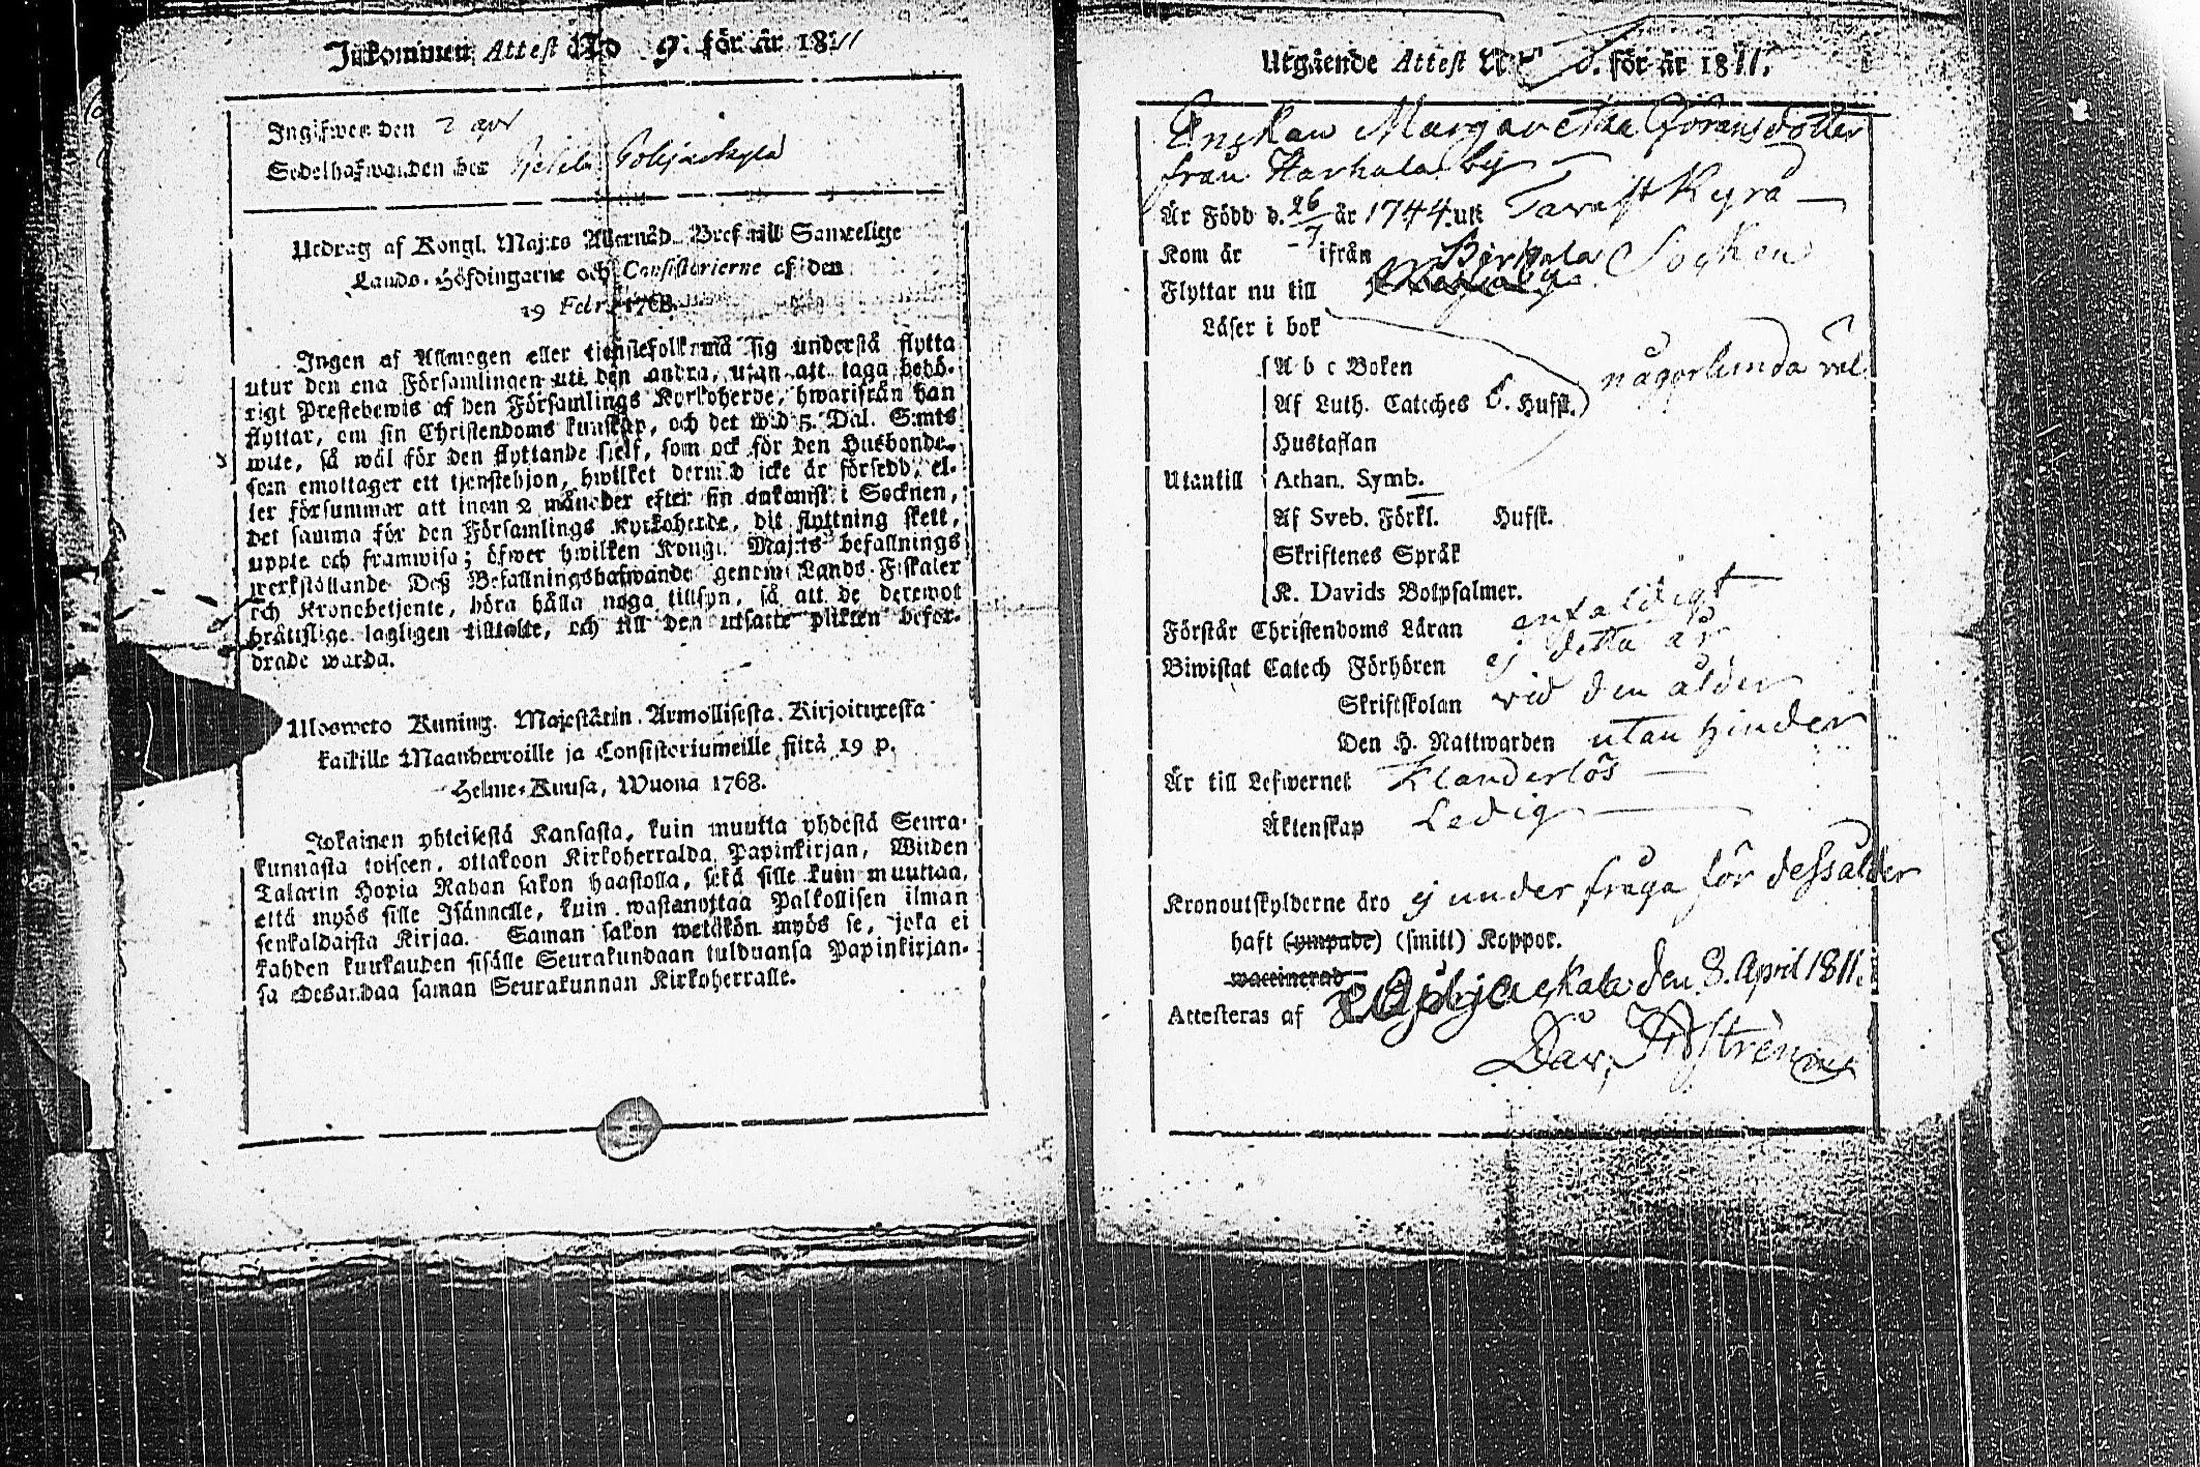 Inkommen Attest No 9. för år 1811
Ingifwen den 2 apr
Sedelhafwanden hos
Utdrag af Kongl. Maj:ts Allernåd. Bref till Samtelige
Lands-Höfdingarne och Consistorierne af den
19 Febr. 1768.
Ingen af Allmogen eller tienstefolk må sig understå flytta
utur den ena Församlingen uti den andra, utan att taga behö-
rigt Prestebewis af den Församlings Kyrkoherde, hwarifrån han
flyttar, om sin Christendoms kunskap, och det wid 5. Dal. S:mts
wite, så wäl för den flyttande sielf, som ock för den Husbonde,
som emottager ett tjenstehjon, hwilket dermed icke är försedd, el-
ler försummar att inom 2 månader efter sin ankomst i Socknen,
det samma för den Församlings Kyrkoherde, dit flyttning skett,
uppte och framwisa; öfwer hwilken Kongl. Maj:ts befallnings
werkställande Deß Befallningshafwande genom Lands-Fiskaler
och Kronobetjente, böra hålla noga tillsyn, så att de deremot
bråttslige lagligen tilltalte, och till den utsatte plikten befor-
drade warda.
Ulosweto Kuning. Majestätin Armollisesta Kirjoituxesta
kaikille Maanherroille ja Consistoriumeille siitä 19 p.
Helme-Kuusa, Wuona 1768.
Jokainen yhteisestä Kansasta, kuin muutta yhdestä Seura-
kunnasta toiseen, ottakoon Kirkoherralda Papinkirjan, Wiiden
Talarin Hopia Rahan sakon haastolla, sekä sille kuin muuttaa,
että myös sille Isännelle, kuin wastanottaa Palkollisen ilman
senkaldaista Kirjaa. Saman sakon wetäkön myös se, joka ei
kahden kuukauden sisälle Seurakundaan tulduansa Papinkirjan-
sa edesandaa saman Seurakunnan Kirkoherralle.
Utgående Attest för år 1811.
Enkan Margaretha Göransdotter
från Harhala by
Är Född d. 26/7 år 1744. uti Tavast Kyrå
Kom år ifrån
Flyttar nu till Birkala Socken
Läser i bok
A b c Boken
Af Luth. Cateches 6. Hufst. någorlunda väl
Hustaflan
Utantill Athan. Symb.
Af Sveb. Förkl. Hufst.
Skriftenes Språk
K. Davids Botpsalmer.
Förstår Christendoms Läran enfaldigt
Biwistat Catech Förhören ej detta år
Skriftskolan vid den ålder
Den H. Nattwarden utan hinder
Är till Lefwernet Klanderlös
Äktenskap Ledig
Kronoutskylderne äro ej under fråga för dess ålder
haft (ympade) (smitt) Koppor.
waccinerad
Attesteras af den 8. April 1811.
Dav.